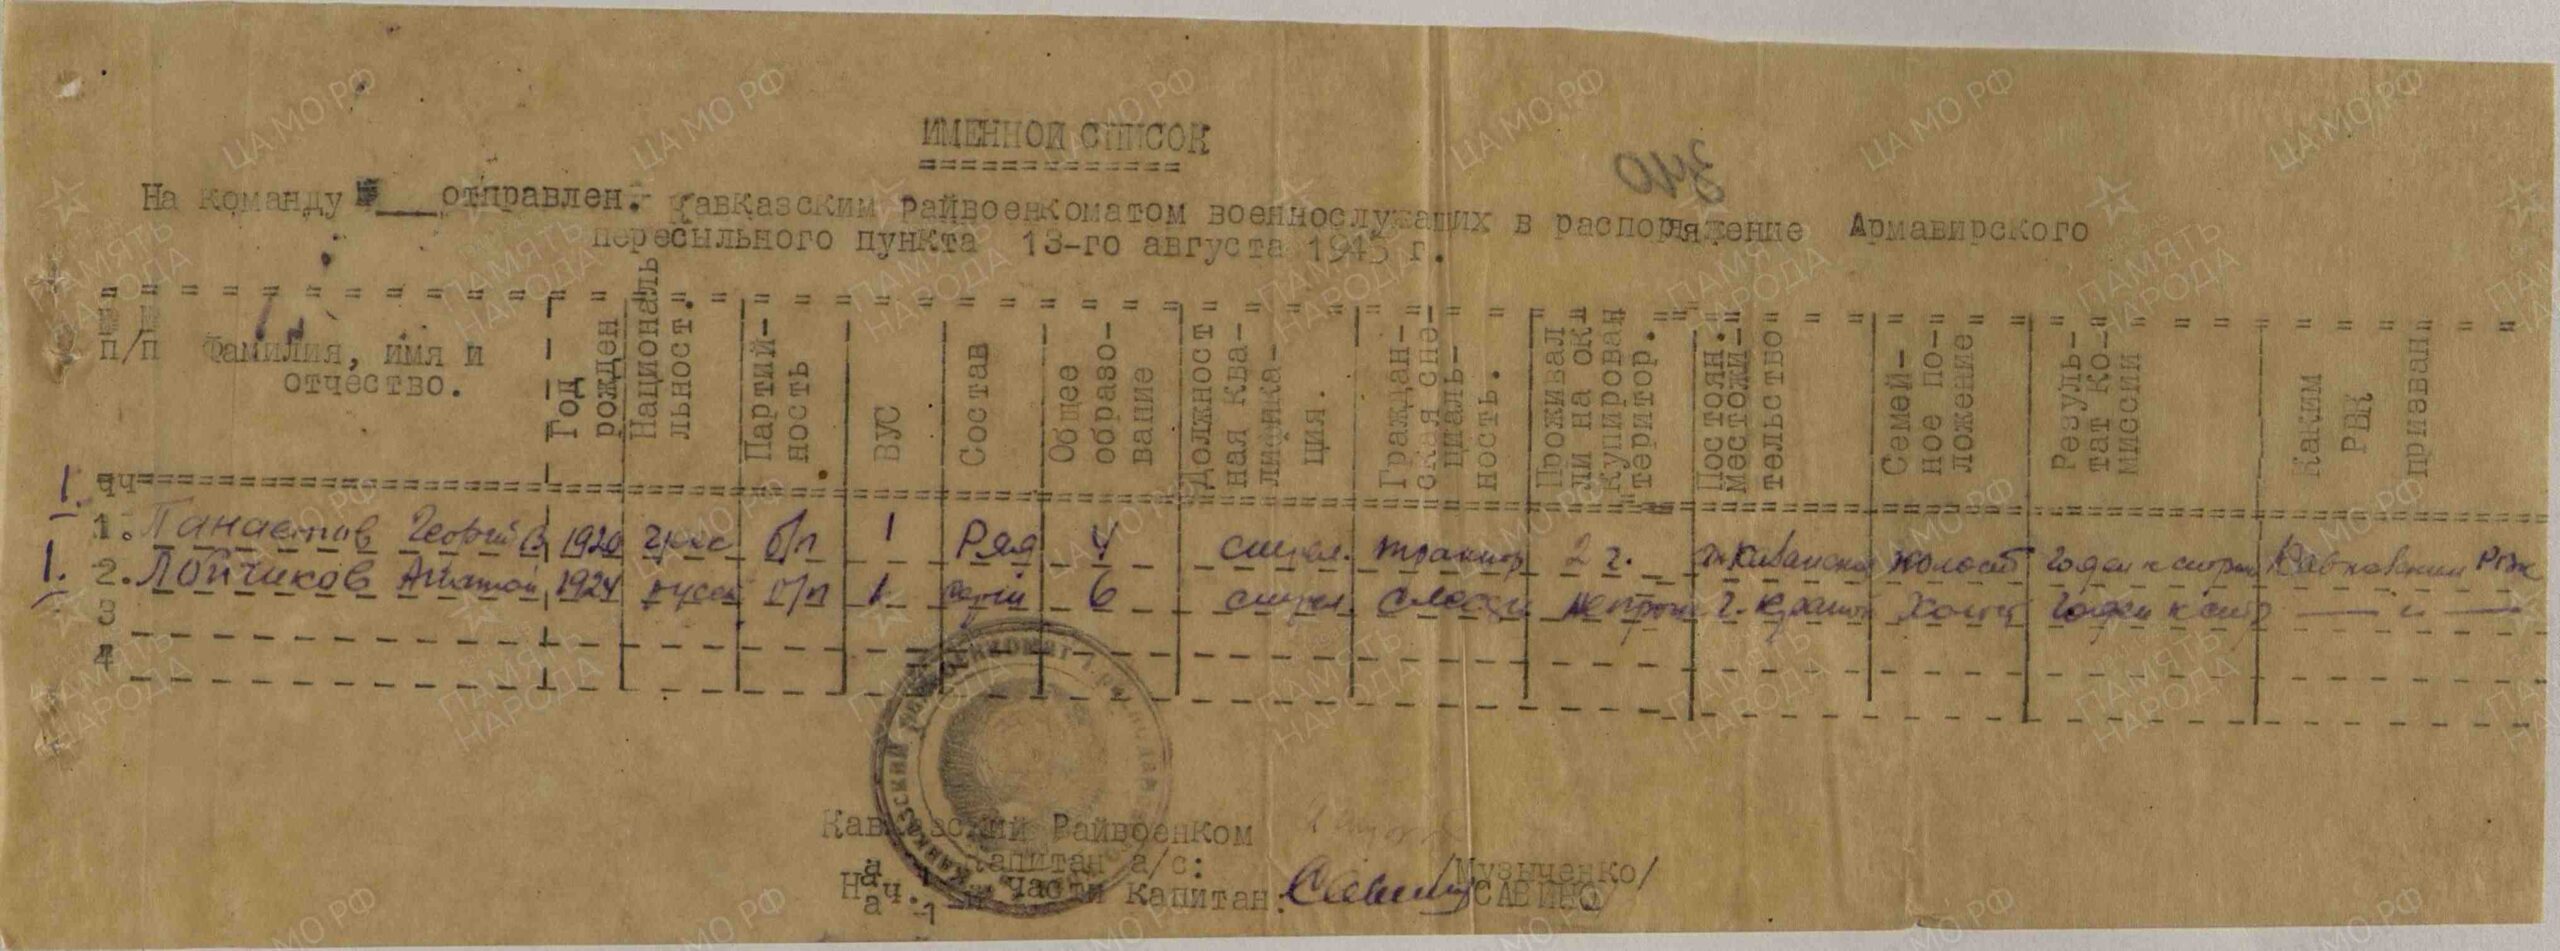 ИМЕННОЙ СПИСОК
340
На команду отправлен. Кавказским райвоенкоматом военнослужащих в распоряжение Армавирского
пересыльного пункта 13-го августа 1943 г.
п/п Фамилия, имя и отчество. Год рожден Националь льност. Партий- ность ВУС Состав Общее образо- вание Должност ная ква- лифика- ция. Граждан- ская спе- циаль- ность. Проживал ли на ок- купирован територ. Постоян. местожи- тельство Семей- ное по- ложение Резуль- тат ко- миссии Каким РВК призван
1. 1. Георгий 1920 грек б/п 1 Ряд 4 стрел. тракт 2 г. холост годен к строев Кавказским РВК
1. 2. Лойчиков 1924 русск б/п 1 6 стрел. слесарь г. холост годен к —— " ——
3
4
Кавказский Райвоенком
Капитан а/с: /Музыченко/
Нач. 1-й части Капитан: САВИНО/
КАВКАЗСКИЙ РАЙВОЕНКОМАТ
ЦА МО РФ
ПАМЯТЬ НАРОДА